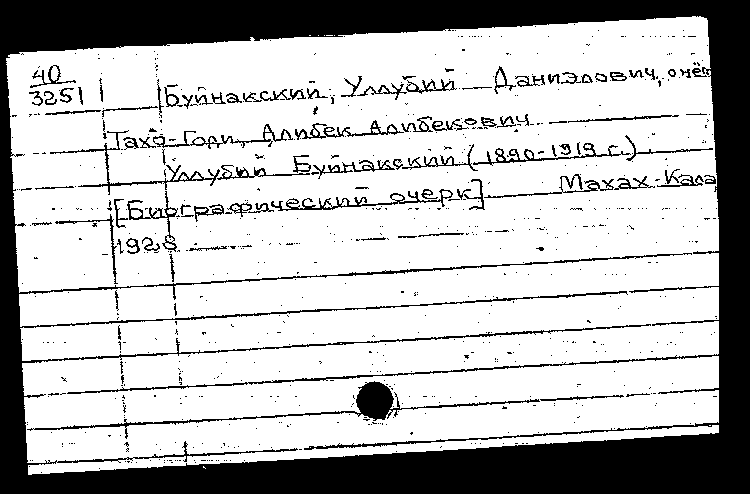 40
3251
Буйнакский, Уллубий Даниялович, о нём
Тахо-Годи, Алибек Алибекович
Уллубий Буйнакский (1890-1919 г.).
[Биографический очерк] Махач-Кала
1928